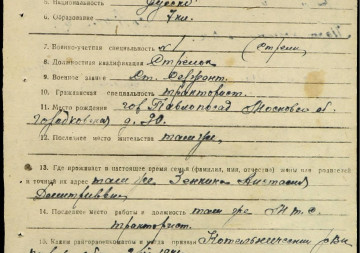 5. Национальность русск
6. Образование 7 кл.
7. Военно-учетная специальность (стрелк
8. Должностная квалификация Стрелок
9. Военное звание Ст. Сержант.
10. Гражданская специальность тракторист.
11. Место рождения гор Павлопосад Московск об
Городковская д. 30.
12. Последнее место жительства там же.
13. Где проживает в настоящее время семья (фамилия, имя, отчество) жены или родителей
и точный их адрес там же Анастасия
Дмитриевна
14. Последнее место работы и должность там же М.т.с.
тракторист.
15. Каким райгорвоенкоматом и когда призван Котельнический рВк